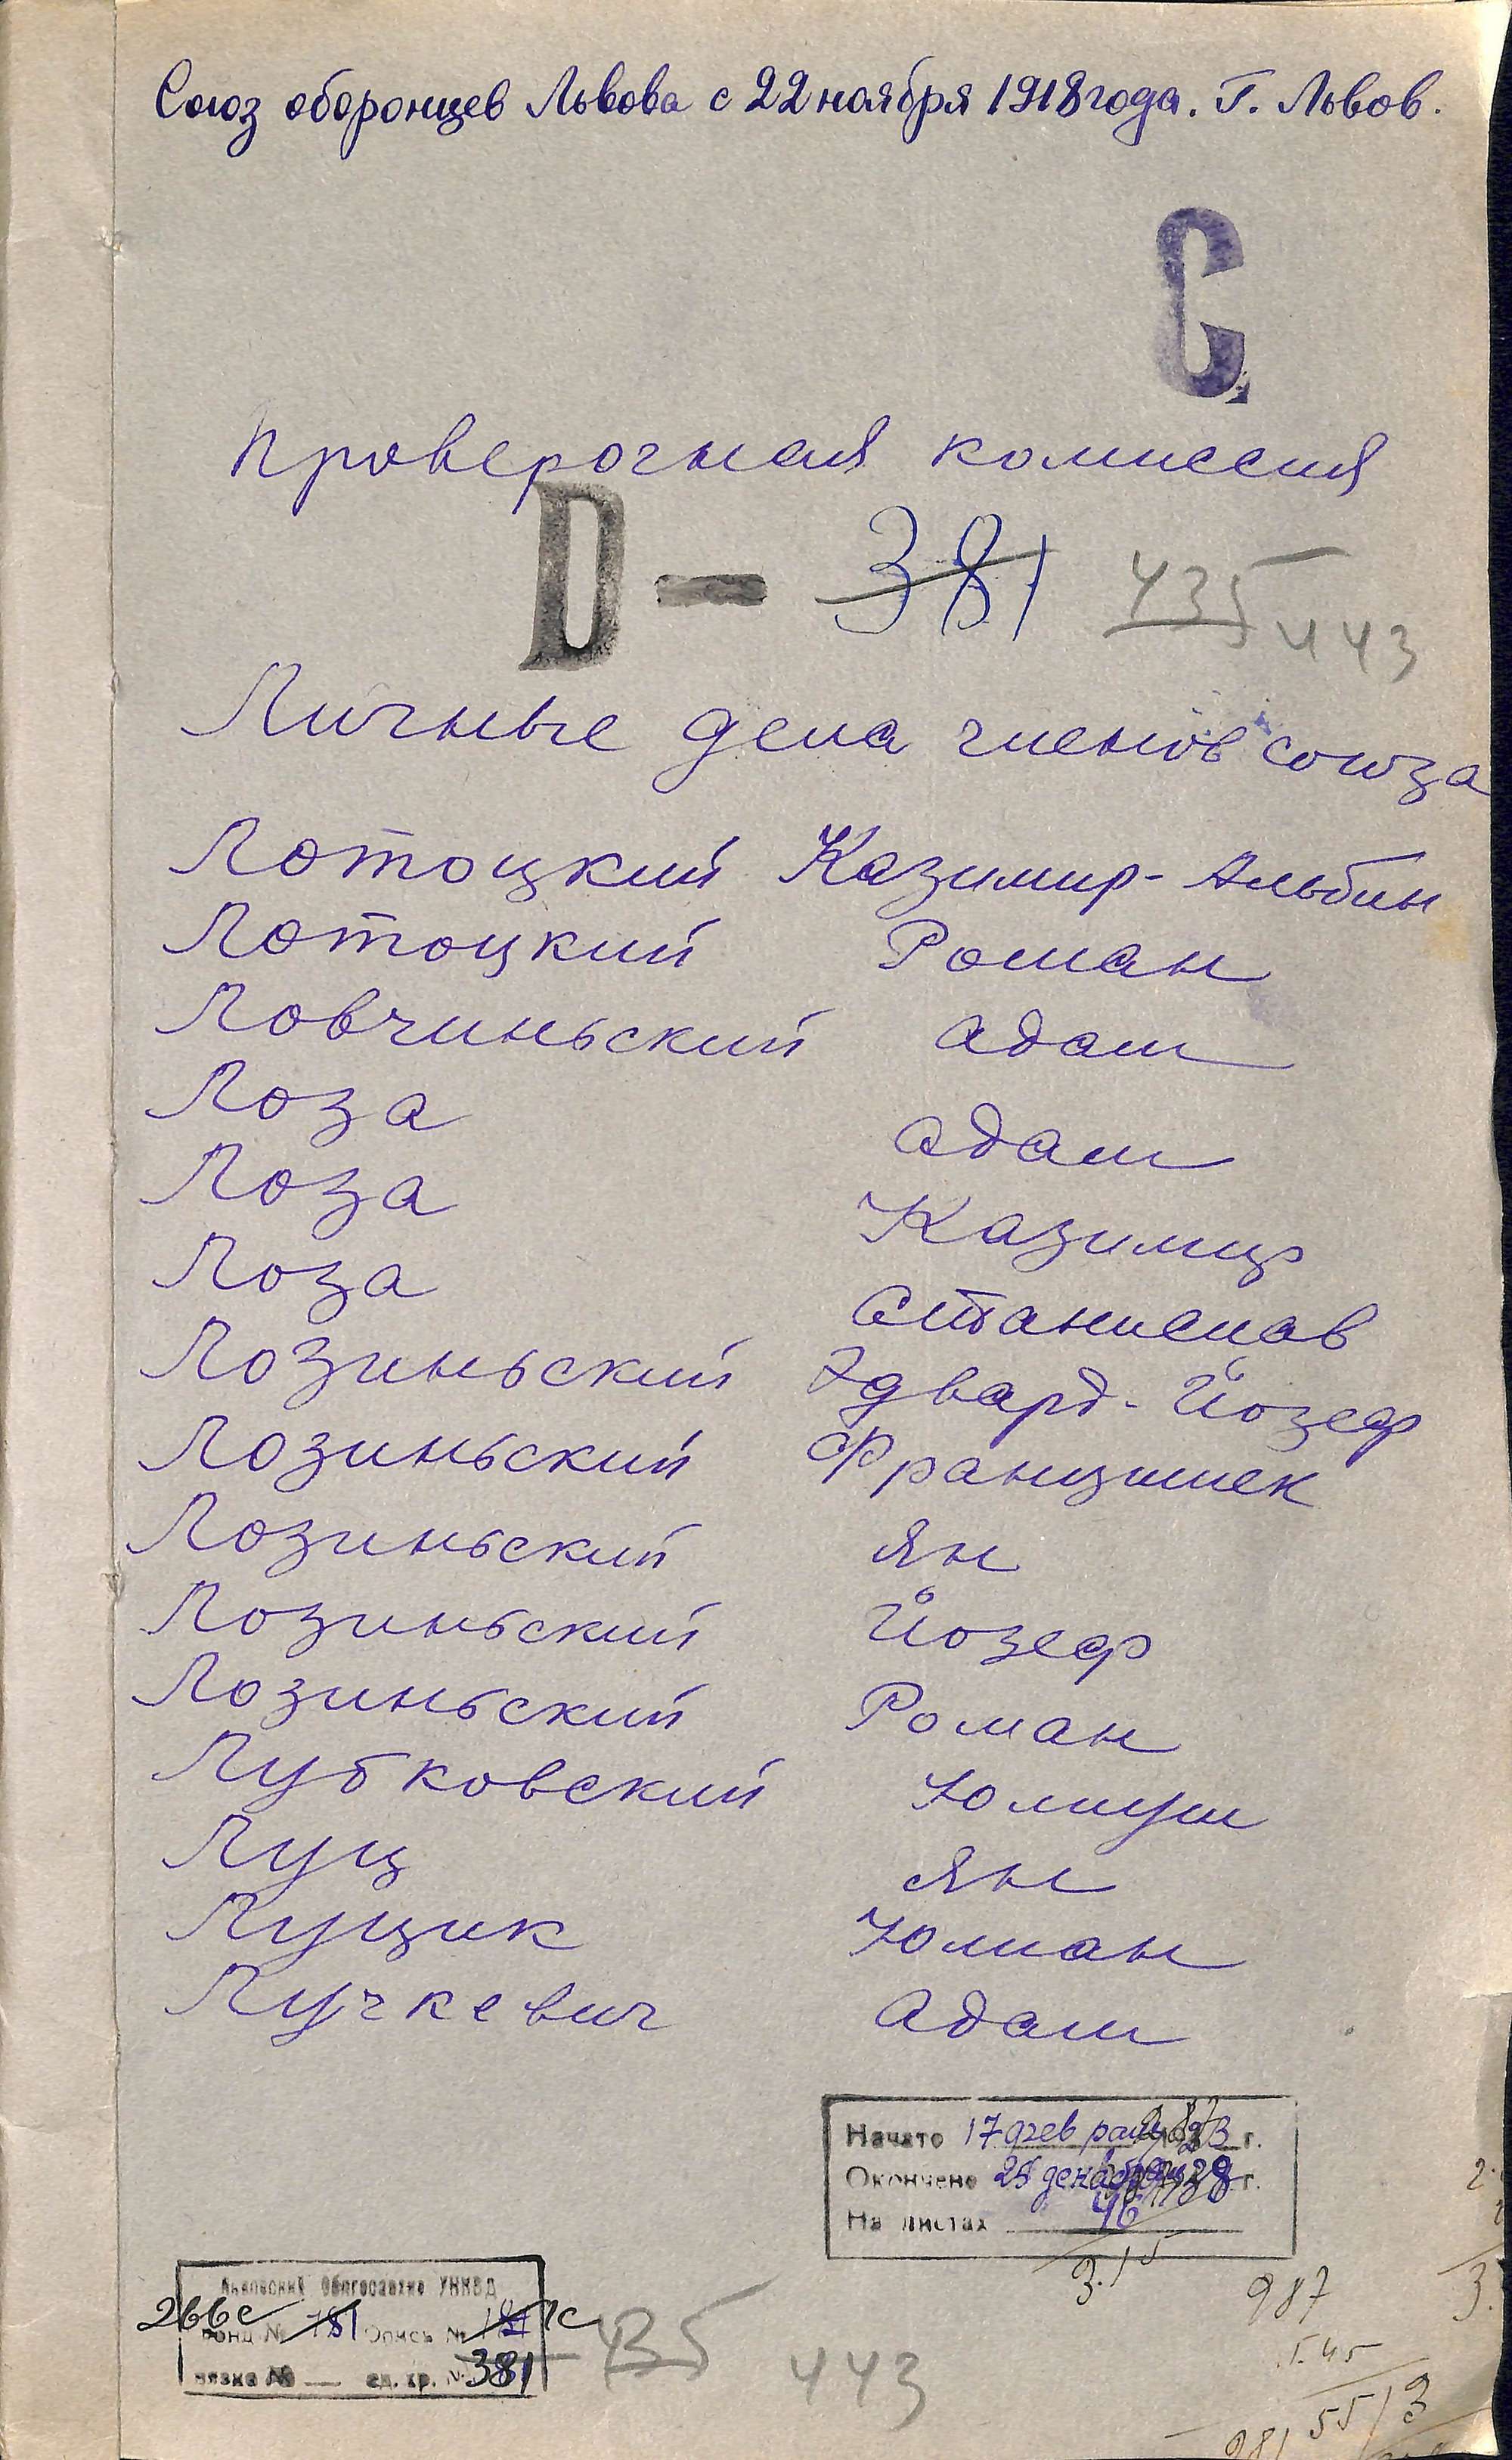 Союз оборонцев Львова с 22 ноября 1918 года. Г. Львов.
С
Проверочная комиссия
D — 381 435 443
Личные дела членов союза
Лотоцкий Казимир-Альбин
Лотоцкий Роман
Ловчиньский Адам
Лоза Адам
Лоза Казимир
Лоза Станислав
Лозиньский Эдвард-Йозеф
Лозиньский Францишек
Лозиньский Ян
Лозиньский Йозеф
Лозиньский Роман
Лубковский Юлиуш
Луц Ян
Луцик Юлиан
Лучкевич Адам
Начато 17 февраля г.
Окончено декабря г.
На листах 46
315
987
545
5513
981
Львовский Облгосархив УНКВД
266с Фонд № 181 Опись № 1с
вязка № — ед. хр. № 381 435 443